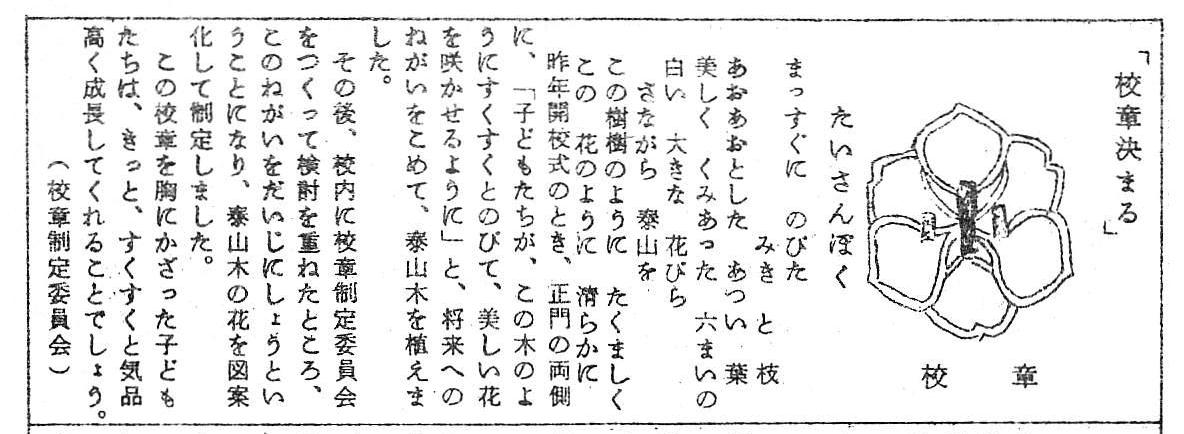 「校章決まる」
校章
たいさんぼく
まっすぐに　のびた
みきと枝
あおあおとした　あつい　葉
美しく　くみあった　六まいの
白い　大きな　花びら
さながら　泰山を
この樹樹のように　たくましく
この　花のように　清らかに
昨年開校式のとき、正門の両側
に、「子どもたちが、この木のよ
うにすくすくとのびて、美しい花
を咲かせるように」と、将来への
ねがいをこめて、泰山木を植えま
した。
その後、校内に校章制定委員会
をつくって検討を重ねたところ、
このねがいをだいじにしょうとい
うことになり、泰山木の花を図案
化して制定しました。
この校章を胸にかざった子ども
たちは、きっと、すくすくと気品
高く成長してくれることでしょう。
（校章制定委員会）